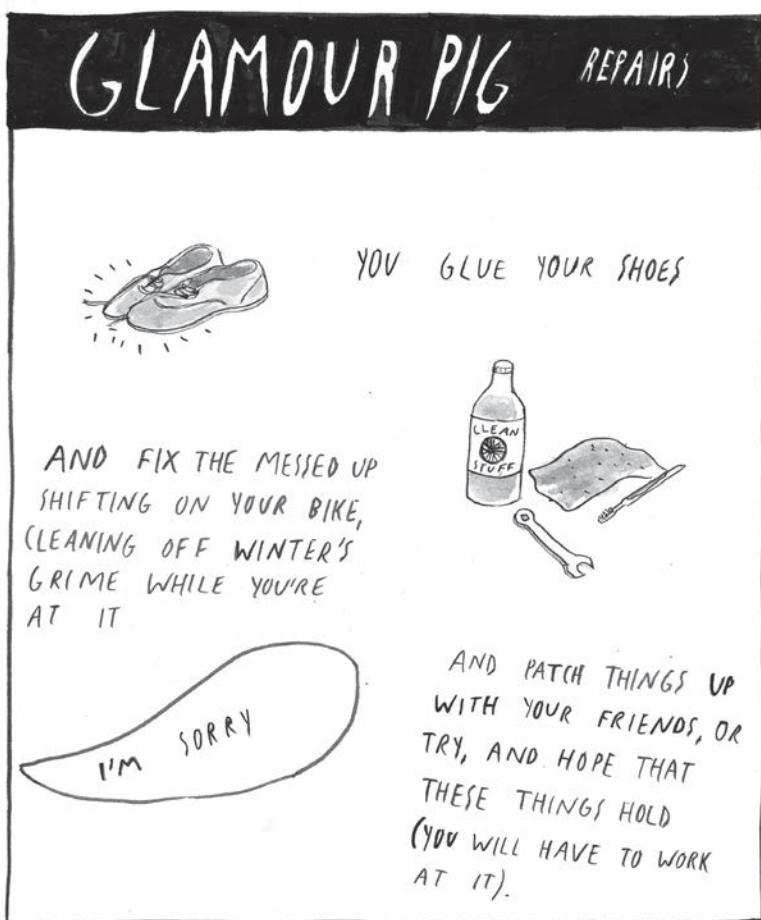 GLAMOUR PIG REPAIRS
YOU GLUE YOUR SHOES
CLEAN
STUFF
AND FIX THE MESSED UP
SHIFTING ON YOUR BIKE,
CLEANING OFF WINTER'S
GRIME WHILE YOU'RE
AT IT
I'M SORRY
AND PATCH THINGS UP
WITH YOUR FRIENDS, OR
TRY, AND HOPE THAT
THESE THINGS HOLD
(YOU WILL HAVE TO WORK
AT IT).